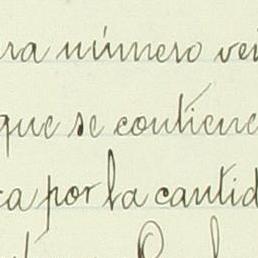 ra número vei
que se contiene
ca por la cantid